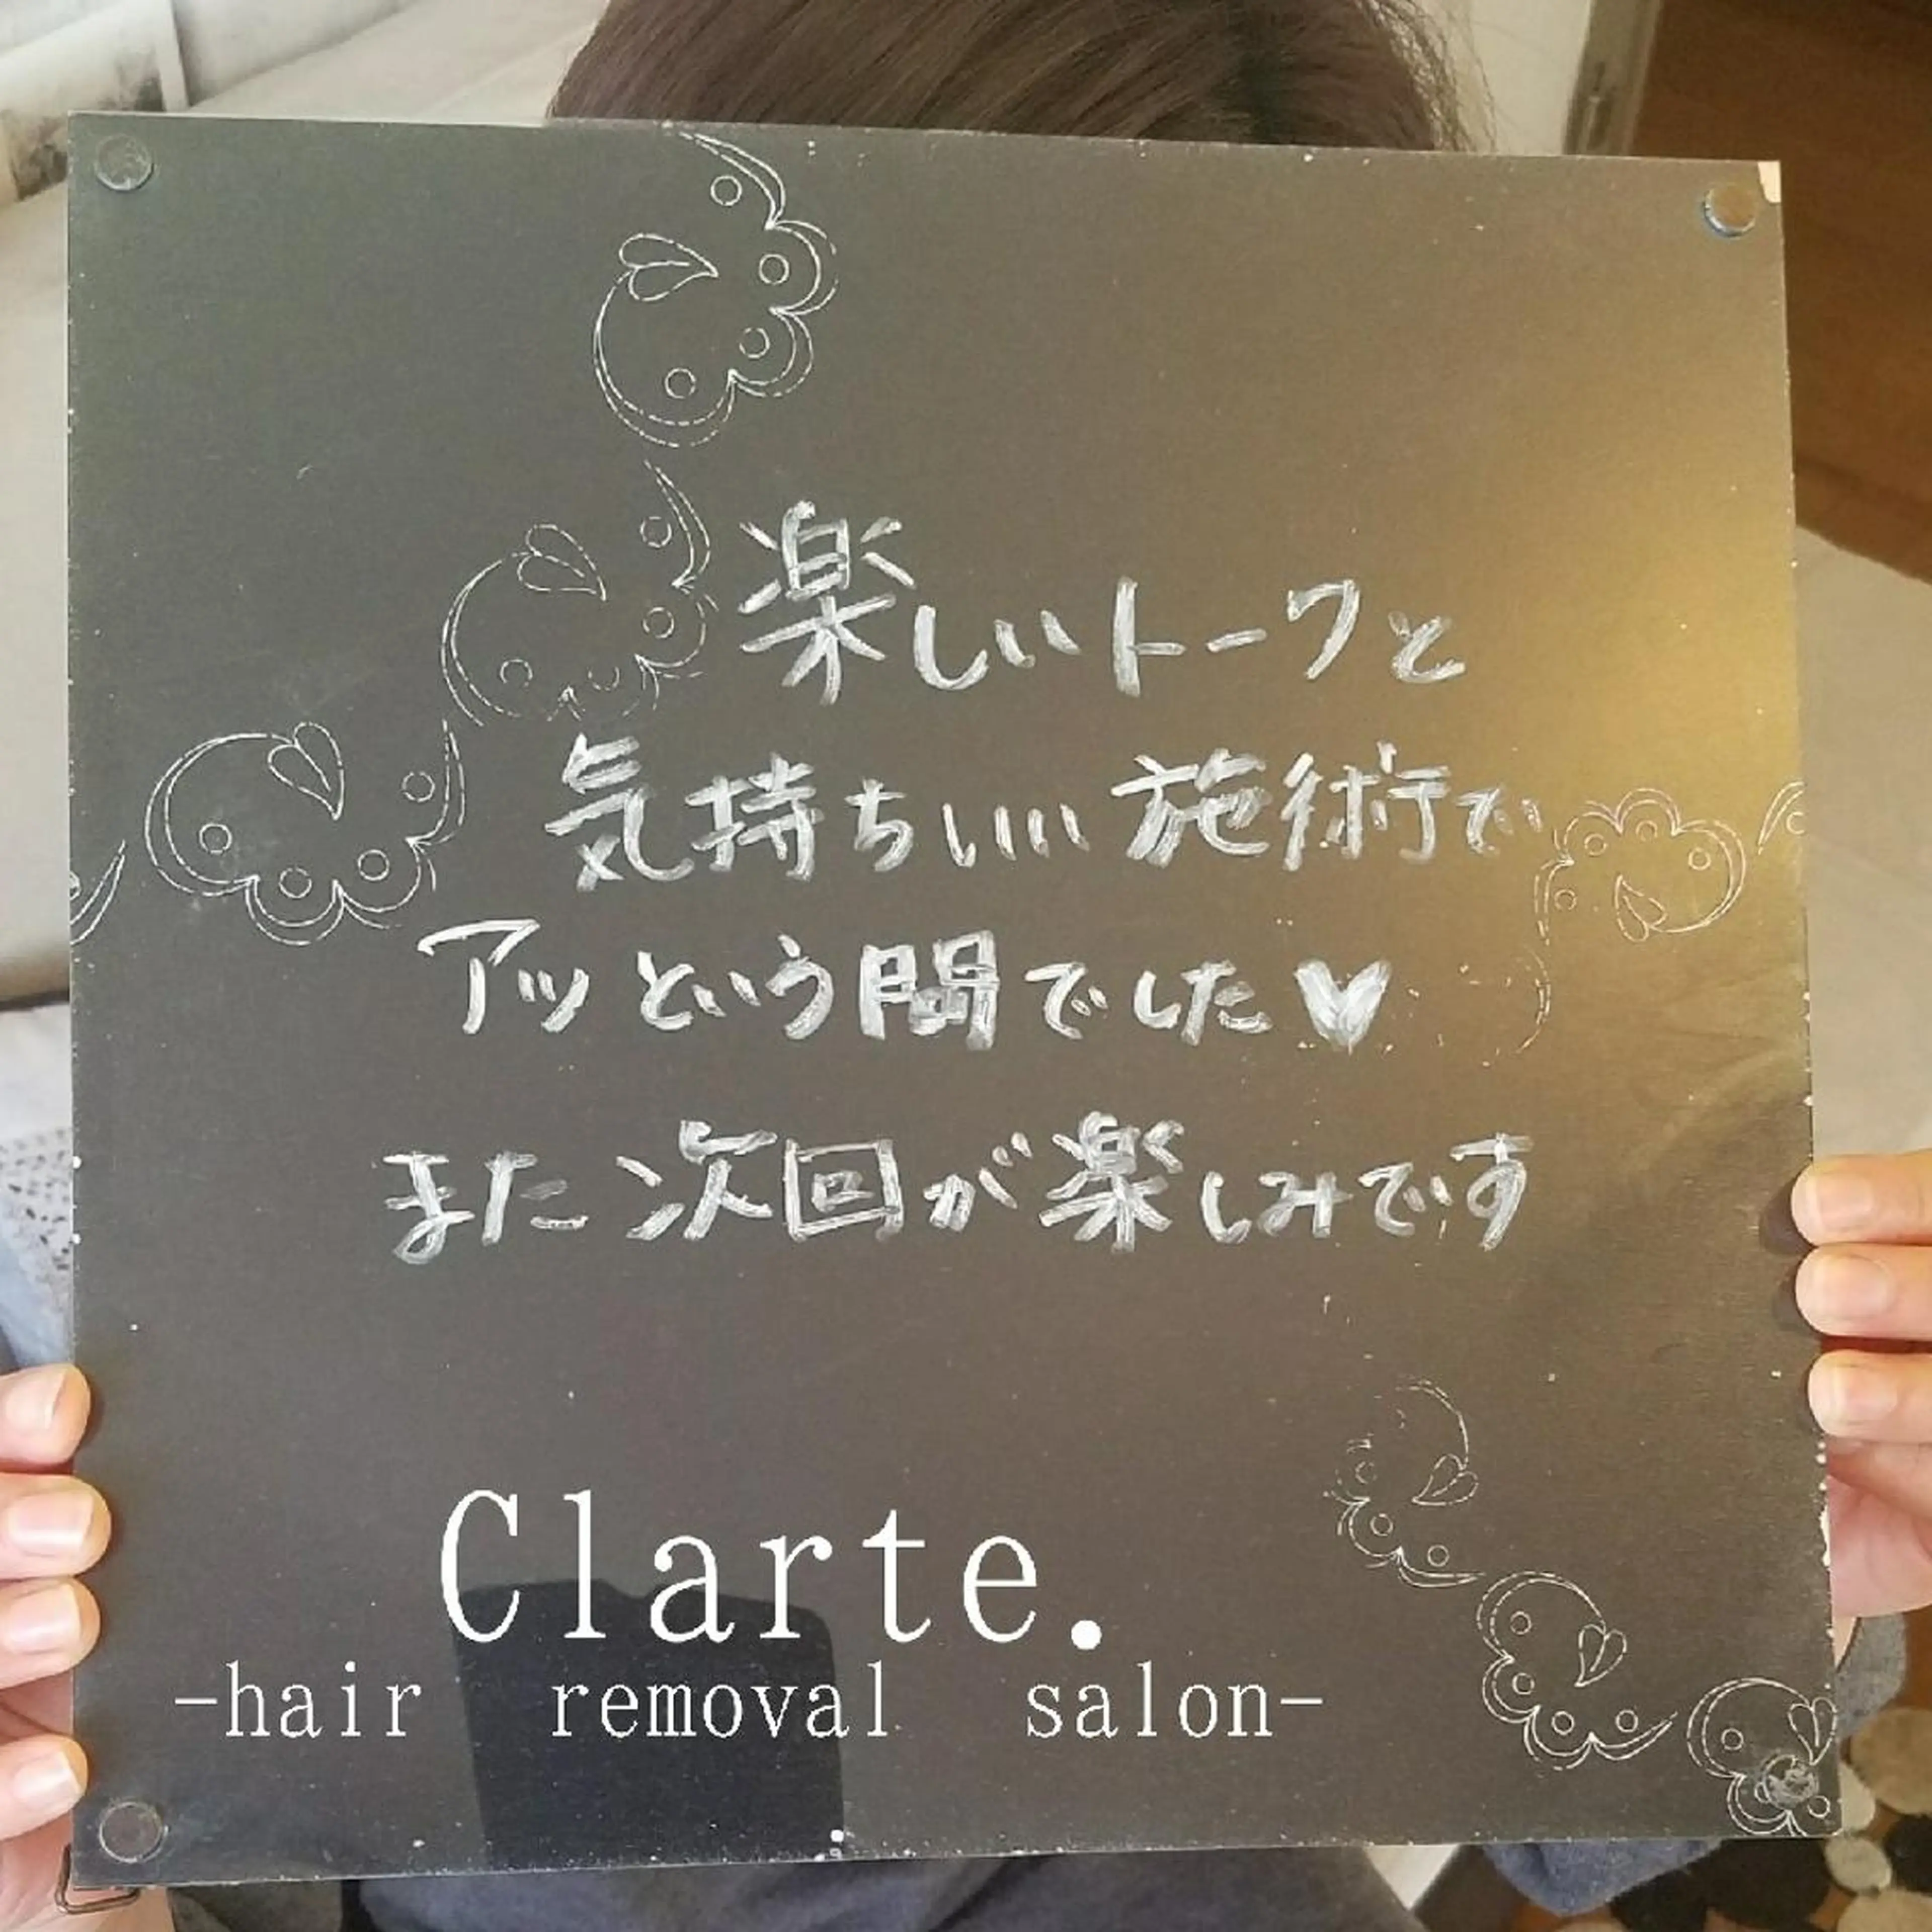 楽しいトークと
気持ちいい施術で
アッという間でした♥
また次回が楽しみです
Clarte.
-hair removal salon-